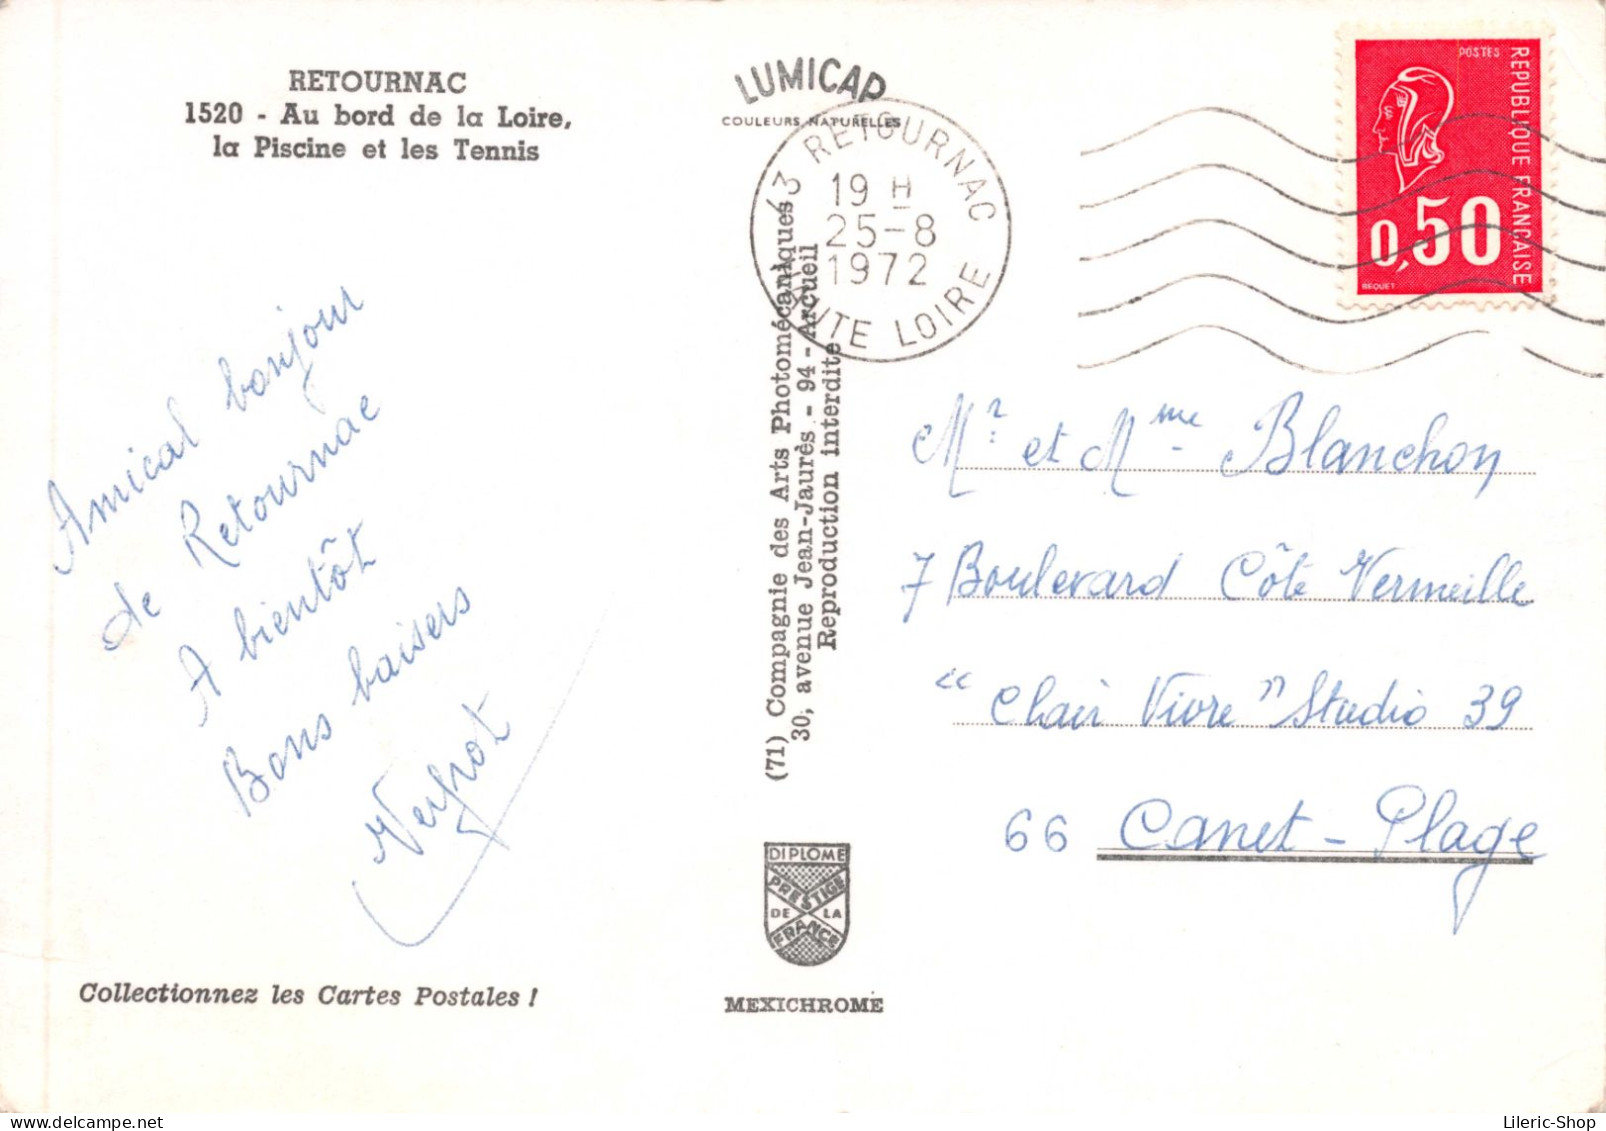 RETOURNAC
1520 - Au bord de la Loire,
la Piscine et les Tennis
LUMICAP
COULEURS NATURELLES
43 RETOURNAC
19 H
25-8
1972
HAUTE LOIRE
POSTES
REPUBLIQUE FRANÇAISE
0,50
BEQUET
Amical bonjour
de Retournac
A bientôt
Bons baisers
(71) Compagnie des Arts Photomécaniques
30, avenue Jean-Jaurès - 94 - Arcueil
Reproduction interdite
Mr et Mme Blanchon
7 Boulevard Côte Vermeille
"Clair Vivre" Studio 39
66 Canet-Plage
DIPLOME
PRESTIGE
DE LA
FRANCE
MEXICHROME
Collectionnez les Cartes Postales !
Lileric-Shop